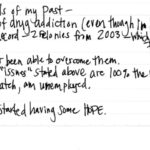 ls of my past –
of drug addiction (even though I'm
ecord – 2 felonies from 2003 – which
been able to overcome them.
"issues" stated above are 100% the
atch, am unemployed.
started having some HOPE.